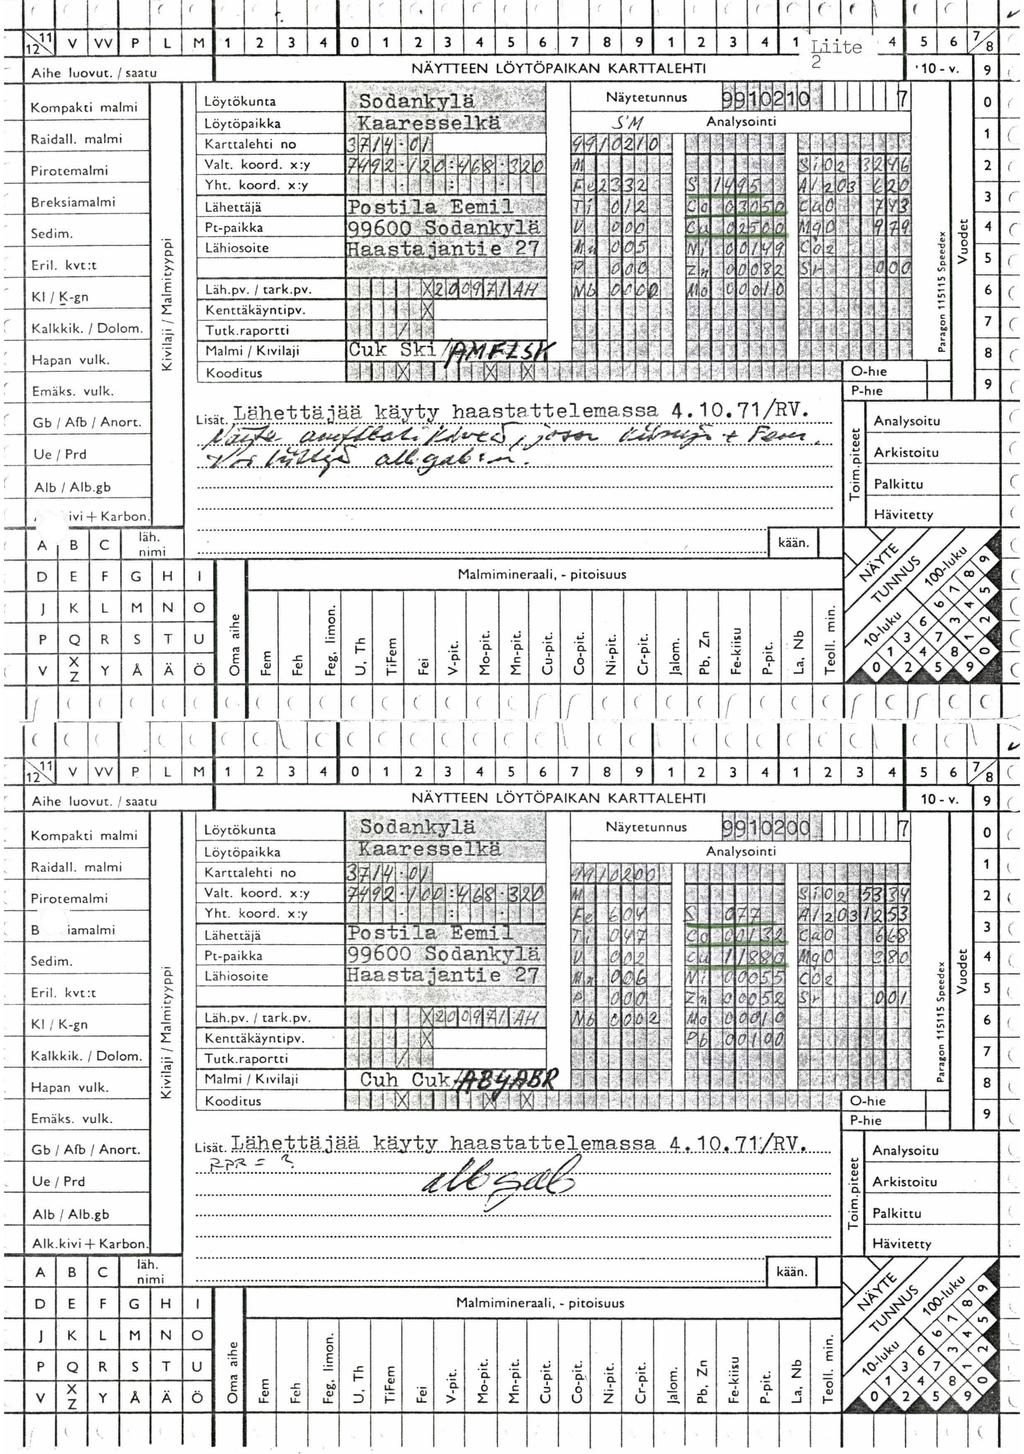 11 12 V VV P L M 1 2 3 4 0 1 2 3 4 5 6 7 8 9 1 2 3 4 1 Liite 2 4 5 6 7/8
Aihe luovut. / saatu NÄYTTEEN LÖYTÖPAIKAN KARTTALEHTI 10 - v. 9
Kompakti malmi Löytökunta Sodankylä Näytetunnus 9910210 7 0
Löytöpaikka Kaaresselkä S'M Analysointi
Raidall. malmi Karttalehti no 3714.01 9910210 1
Pirotemalmi Valt. koord. x:y 7492.120:468.320 M SiO2 3246 2
Yht. koord. x:y Fe 2332 S 1495 Al2O3 620
Breksiamalmi Lähettäjä Postila Eemil Ti 012 Co 03050 CaO 743 3
Sedim. Pt-paikka 99600 Sodankylä V 000 Cu 02500 MgO 979 4
Lähiosoite Haastajantie 27 Mn 005 Ni 00149 CO2
Eril. kvt:t P 000 Zn 00082 Sr 000 5
Kl / K-gn Läh.pv. / tark.pv. X200971/AH Nb 0000 Mo 00010 6
Kenttäkäyntipv. X
Kalkkik. / Dolom. Tutk.raportti / 7
Hapan vulk. Malmi / Kivilaji Cuk Ski/AMFISK 8
Kooditus X X X O-hie
Emäks. vulk. P-hie 9
Kivilaji / Malmityyppi
Paragon 115115 Speedex
Vuodet
Gb / Afb / Anort. Lisät. Lähettäjää käyty haastattelemassa 4.10.71/RV. Analysoitu
Ue / Prd Arkistoitu
Alb / Alb.gb Palkittu
ivi + Karbon. Hävitetty
Toim.piteet
A B C läh. nimi kään. NÄYTE TUNNUS 100-luku 10-luku
D E F G H I Malmimineraali, - pitoisuus
J K L M N O
P Q R S T U
V X Z Y Å Ä Ö Oma aihe Fem Feh Feg, limon. U, Th TiFem Fei V-pit. Mo-pit. Mn-pit. Cu-pit. Co-pit. Ni-pit. Cr-pit. Jalom. Pb, Zn Fe-kiisu P-pit. La, Nb Teoll. min. 0 2 5 9
11 12 V VV P L M 1 2 3 4 0 1 2 3 4 5 6 7 8 9 1 2 3 4 1 2 3 4 5 6 7/8
Aihe luovut. / saatu NÄYTTEEN LÖYTÖPAIKAN KARTTALEHTI 10 - v. 9
Kompakti malmi Löytökunta Sodankylä Näytetunnus 9910200 7 0
Löytöpaikka Kaaresselkä Analysointi
Raidall. malmi Karttalehti no 3714.01 9910200 1
Pirotemalmi Valt. koord. x:y 7492.100:468.320 M SiO2 5334 2
Yht. koord. x:y Fe 604 S 077 Al2O3 1253
B iamalmi Lähettäjä Postila Eemil Ti 047 Co 00132 CaO 668 3
Sedim. Pt-paikka 99600 Sodankylä V 002 Cu 11880 MgO 380 4
Lähiosoite Haastajantie 27 Mn 006 Ni 00055 CO2
Eril. kvt:t P 000 Zn 00052 Sr 001 5
Kl / K-gn Läh.pv. / tark.pv. X200971/AH Nb 0002 Mo 00010 6
Kenttäkäyntipv. X Pb 00100
Kalkkik. / Dolom. Tutk.raportti / 7
Hapan vulk. Malmi / Kivilaji Cuh Cuk/ABYABR 8
Kooditus X X X O-hie
Emäks. vulk. P-hie 9
Kivilaji / Malmityyppi
Paragon 115115 Speedex
Vuodet
Gb / Afb / Anort. Lisät. Lähettäjää käyty haastattelemassa 4.10.71/RV. Analysoitu
RPR = ?
Ue / Prd albgab Arkistoitu
Alb / Alb.gb Palkittu
Alk.kivi + Karbon. Hävitetty
Toim.piteet
A B C läh. nimi kään. NÄYTE TUNNUS 100-luku 10-luku
D E F G H I Malmimineraali, - pitoisuus
J K L M N O
P Q R S T U
V X Z Y Å Ä Ö Oma aihe Fem Feh Feg, limon. U, Th TiFem Fei V-pit. Mo-pit. Mn-pit. Cu-pit. Co-pit. Ni-pit. Cr-pit. Jalom. Pb, Zn Fe-kiisu P-pit. La, Nb Teoll. min. 0 2 5 9